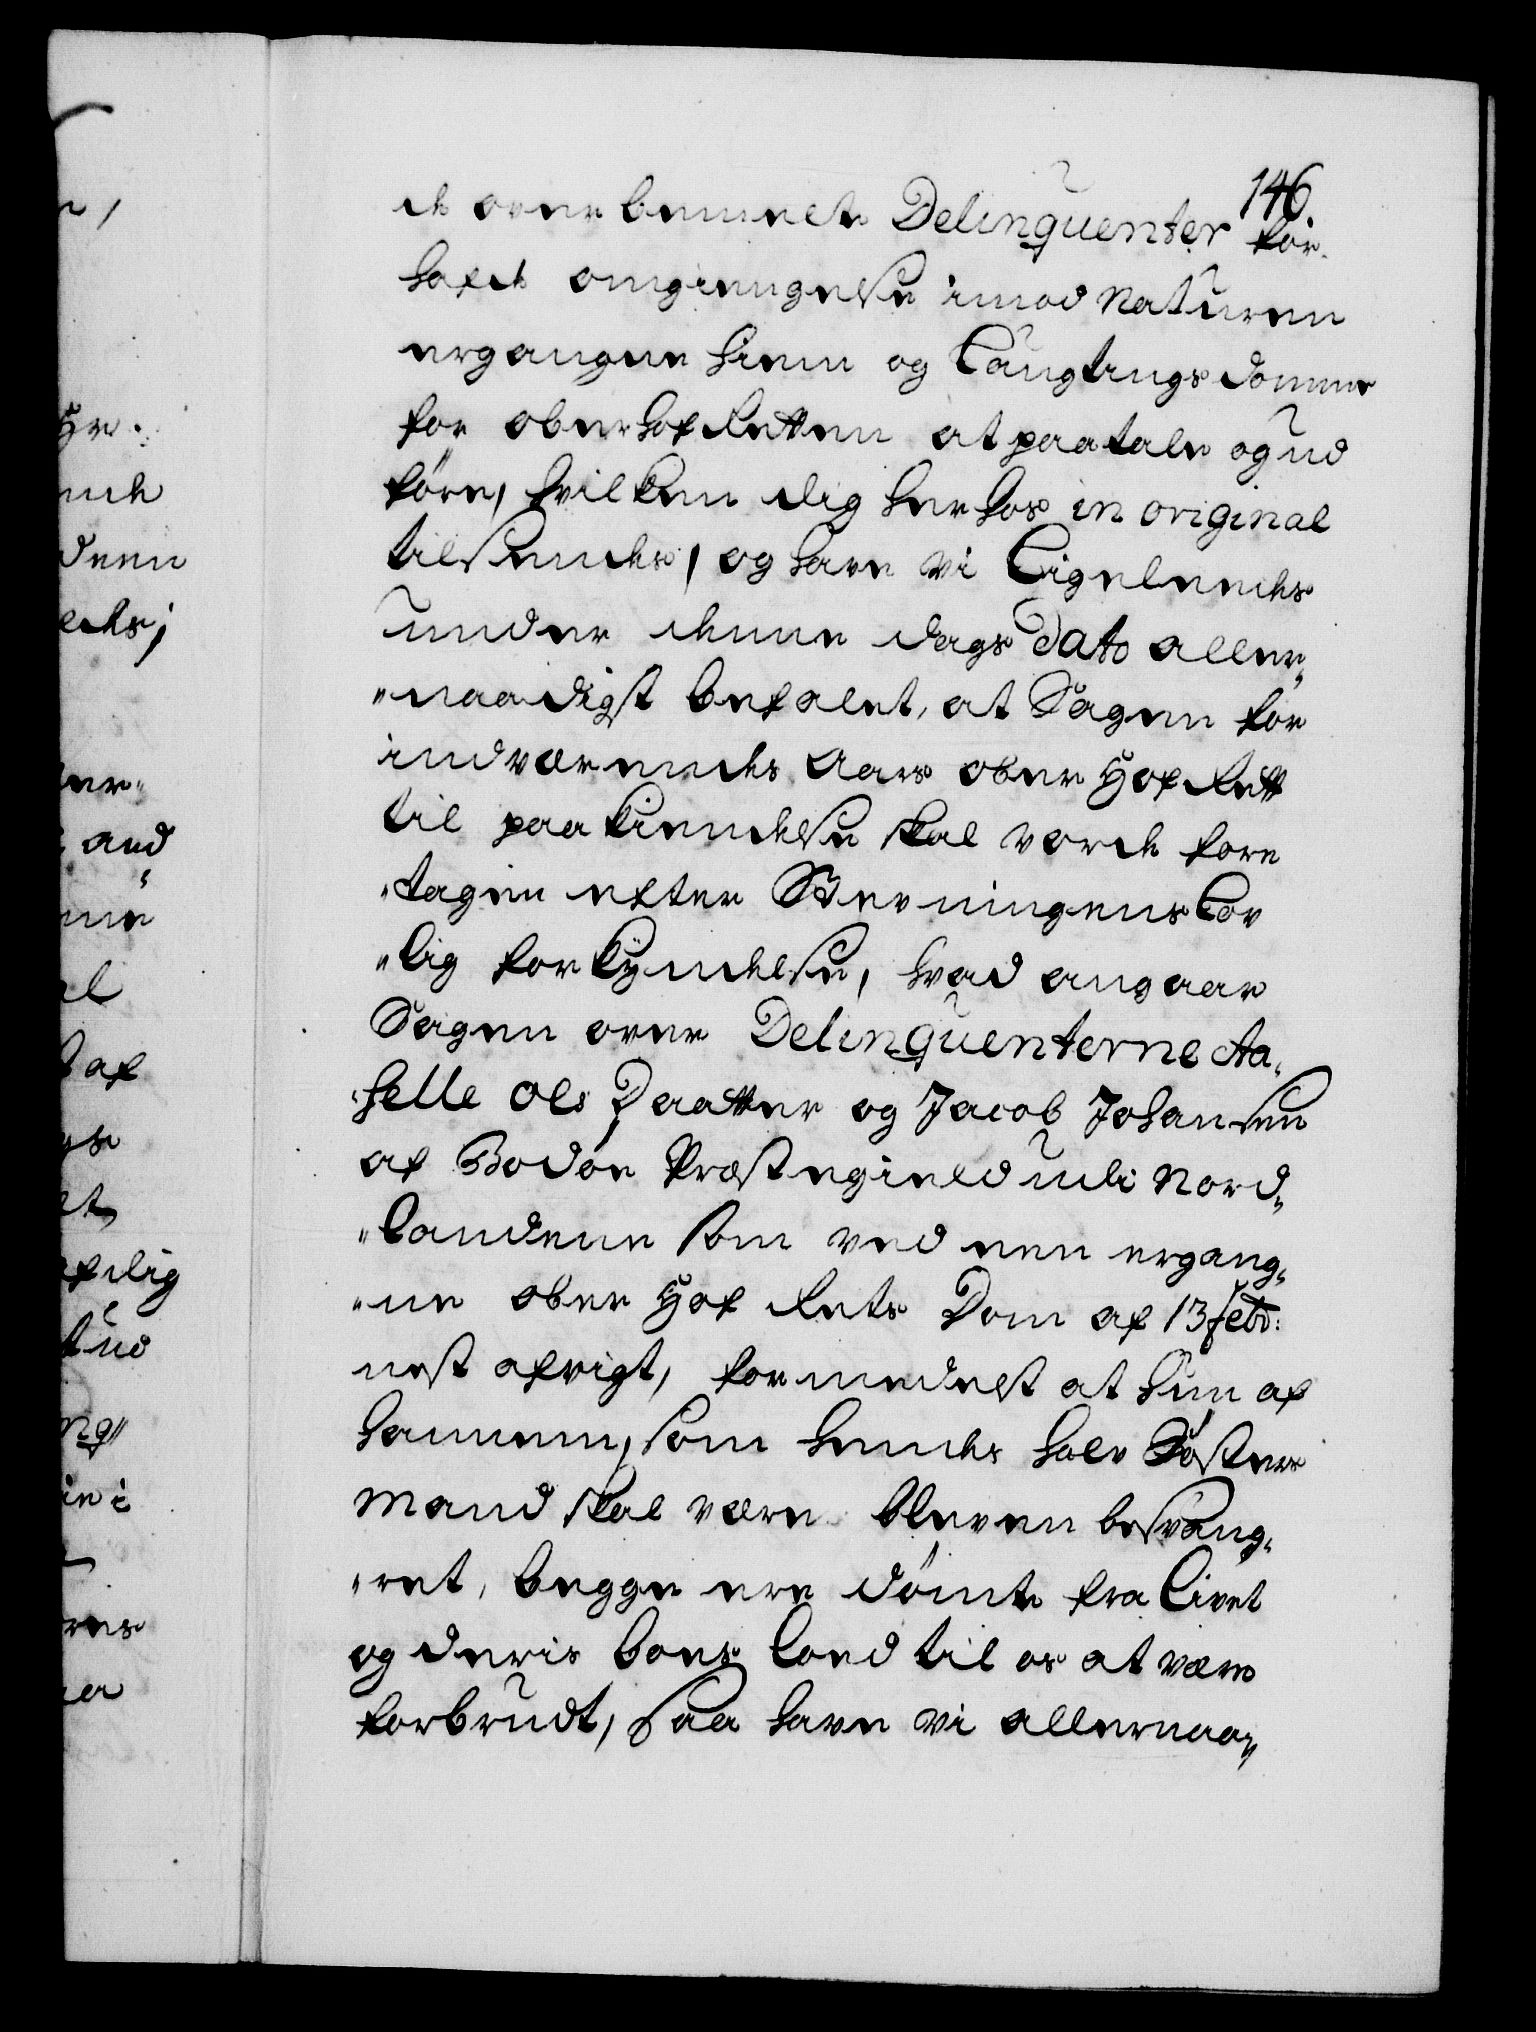 146.
de over bemelte Delinquenter for
hafde omgiengelse imod Naturen
ergangne hiem og Laugtings Domme
for ober hof Retten at paatale og ud
føre, hvilken dig her hos in original
tilsendes, og have vi Ligeledes
under denne dags Dato aller„
„naadigst befalet, at Sagen for
indværendes Aars Ober Hof Rett
til paakiendelse skal vorde fore
„tagen efter Stevningens Lov
„lig forkyndelse, hvad angaar
Sagen over Delinquenterne Aa„
„selle Ols Daatter og Jacob Johansen
af Bodøe Præstegield udi Nord„
„Landene som ved een ergang„
„ne Ober Hof Rets Dom af 13 Febr:
nest afvigt, formedelst at hun af
hannem, som hendes halv Søsters
Mand skal være bleven besvang„
„ret, begge ere dømte fra Livet
og deris boes Lod til os at være
forbrudt, saa have vi allernaa„